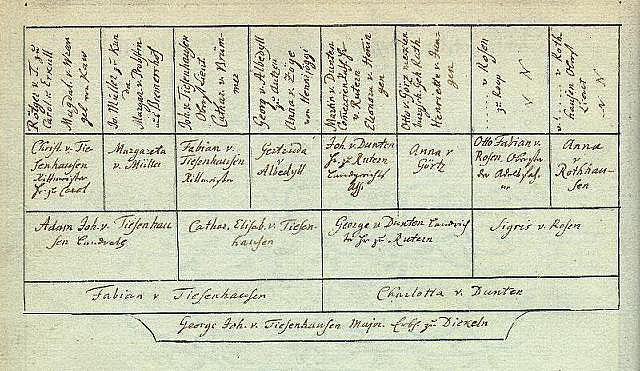 Rötger v. T. zu
Carol u. Erküll
Magdal. v. Wran
gel von Kaw
Jo. Müller zu Kun
da
Margar. v. Probstin
aus Bremerhof
Joh. v. Tiesenhausen
Obrist Lieut.
Cathar. v. Brüm
mer
Georg v. Albedyll
Anna v. Zöge
von Hennijöggi
Martin v. Dunten
Commerzien
v. Rutern
Eleonora v. Hönin
gen
Otto v. Görz
Henrietta v. Jun
gen
v. Rosen
zu Roop
v N
v. Roth
hausen Obrist
Lieut
N N
Christ. v. Tie
senhausen
Rittmeister
Hr. zu Carol
Margareta
v. Müller
Fabian v.
Tiesenhausen
Rittmeister
Gertruda
v
Albedyll
Joh. v. Dunten
Hr. zu Rutern
Landgerichts
Ass
Anna v
Görtz
Otto Fabian v.
Rosen, Obrister
der Adelsfah
ne
Anna
v
Rothhau-
sen
Adam Joh. v. Tiesenhau
sen Landrath
Cathar. Elisab. v. Tiesen-
hausen
George v Dunten Landrich
ter Hr zu Rutern
Sigris v. Rosen
Fabian v Tiesenhausen
Charlotta v. Dunten
George Joh. v. Tiesenhausen Major. Erbh. zu Dickeln